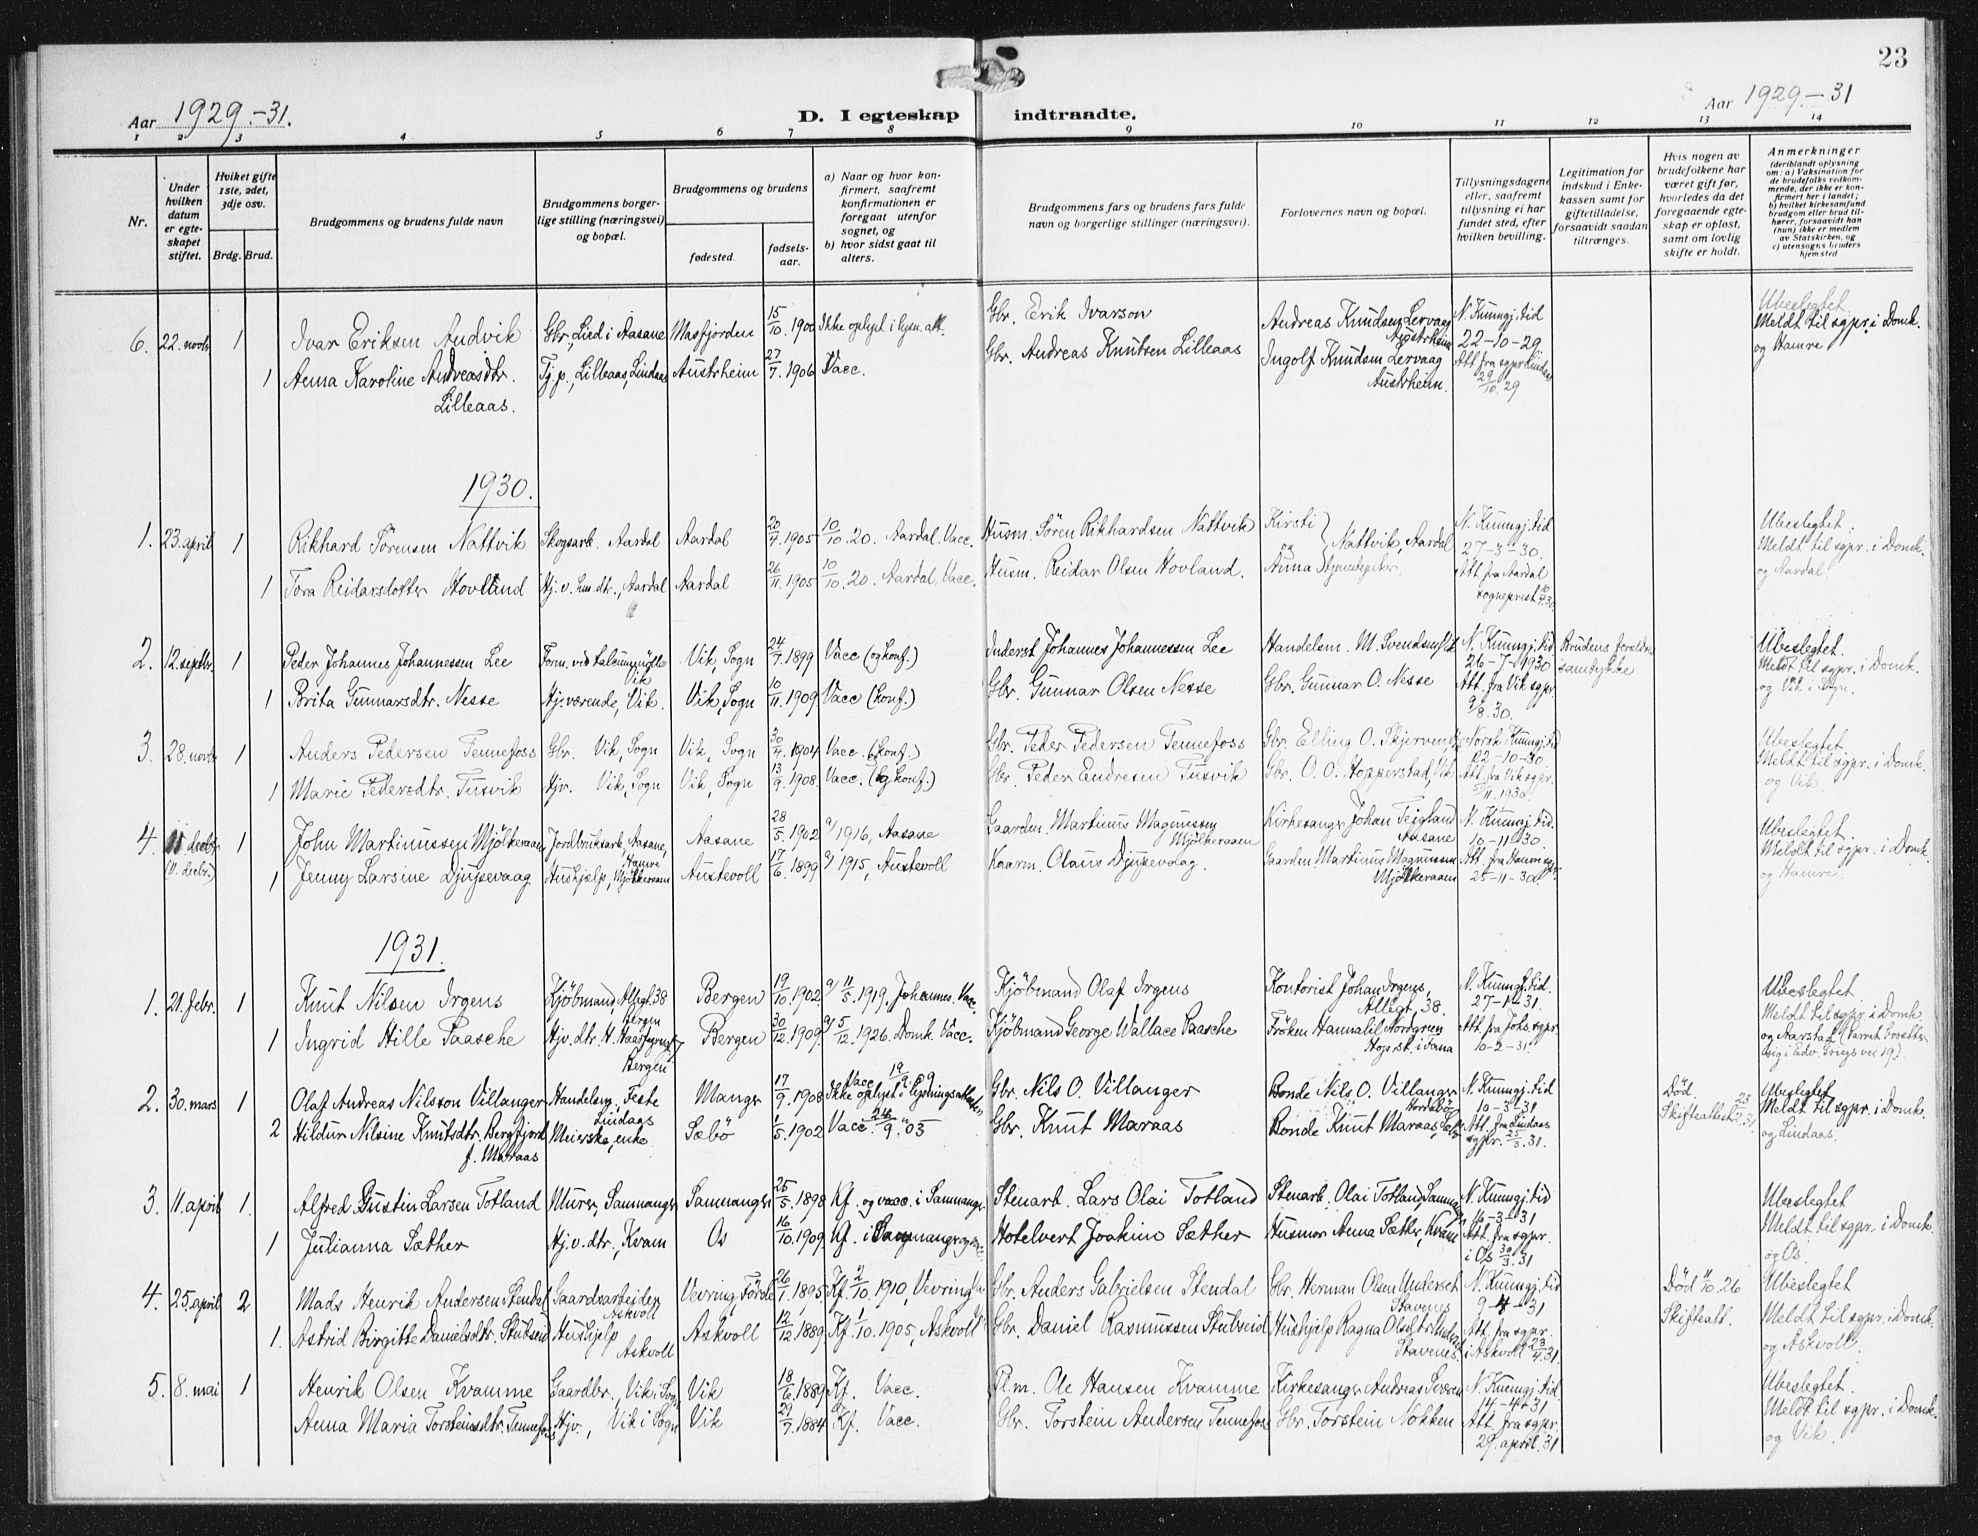 23
Aar 1929.-31.
D. I egteskap indtraadte.
Aar 1929.-31
1 2 3 4 5 6 7 8 9 10 11 12 13 14
Nr.
Under hvilken datum er egteskapet stiftet.
Hviket gifte 1ste, 2det, 3dje osv.
Brdg. Brud.
Brudgommens og brudens fulde navn
Brudgommens borgerlige stilling (næringsvei) og bopæl.
Brudgommens og brudens
fødested.
fødselsaar.
a) Naar og hvor konfirmert, saafremt konfirmationen er foregaat utenfor sognet, og
b) hvor sidst gaat til alters.
Brudgommens fars og brudens fars fulde navn og borgerlige stillinger (næringsvei).
Forlovernes navn og bopæl.
Tillysningsdagene eller, saafremt tillysning ei har fundet sted, efter hvilken bevilling.
Legitimation for indskud i Enkekassen samt for giftetilladelse, forsaavidt saadan tiltrænges.
Hvis nogen av brudefolkene har været gift før, hvorledes da det foregaaende egteskap er opløst, samt om lovlig skifte er holdt.
Anmerkninger
(deriblandt oplysning om: a) Vaksination for de brudefolks vedkommende, der ikke er konfirmert her i landet; b) hvilket kirkesamfund brudgom eller brud tilhører, forsaavidt han (hun) ikke er medlem av Statskirken, og c) utensogns bruders hjemsted
6. 22. novbr 1 Ivar Eriksen Andvik Gbr., Lied i Aasane Masfjorden 15/10 1900 Ikke oplyst i lysn.att. Gbr. Erik Ivarson Andreas Knudsen Lervaag Austrheim N. Kunngj. tid 22-10-29 Ubeslegtet
1 Anna Karoline Andreasdtr. Lilleaas. Tj.p., Lilleaas, Lindaas Austrheim 27/7 1906 Vacc. Gbr. Andreas Knutsen Lilleaas Ingolf Knudsen Lervaag Austrheim. Att fra sgpr Lindaas 29/10.29 Meldt til sgpr. i Domk. og Hamre
1930.
1. 23. april 1 Rikhard Sörensen Nattvik Skogsarb. Aardal Aardal 20/4 1905 10/10.20. Aardal. Vacc. Husm. Sören Rikhardsen Nattvik Kirsti og N. Kunngj. tid 27-3-30. Ubeslegtet.
1 Tora Reidarsdotter Hovland Hj. v. hm. dtr., Aardal Aardal 26/11 1905 10/10.20. Aardal, Vacc. Husm. Reidar Olsen Hovland. Anna Nattvik, Aardal Att fra Aardal sogneprest 10/4 30 Meldt til sgpr. i Domk. og Aardal.
2. 12. septbr. 1 Peder Johannes Johannessen Lee Vik Vik, Sogn 24/7 1899 Vacc (og konf.) Inderst Johannes Johannessen Lee Handelsm. M. Svendsen, Vik N. Kunngj. tid 26-7-1930 Brudens foreldres samtykke Ubeslegtet.
1 Borita Gunnarsdtr. Nesse Hj. værende, Vik. Vik, Sogn 10/11 1909 Vacc (konf.) Gbr. Gunnar Olsen Nesse Gbr. Gunnar O. Nesse Att. fra Vik sgpr 9/8.30. Meldt til sgpr. i Domk. og Vik i Sogn.
3. 28. novbr 1 Anders Pedersen Tennefoss Gbr. Vik, Sogn Vik, Sogn 30/4 1904 Vacc. (konf.) Gbr. Peder Pedersen Tennefoss Gbr. Elling O. Skjerven, Norsk Kunngj. tid 22-10-30. Ubeslegtet.
1 Marie Pedersdtr. Tusvik Hjv. Vik, Sogn Vik, Sogn 13/9 1908. Vacc. (og konf.) Gbr. Peder Andresen Tusvik Gbr. O. O. Hopperstad, Vik Att. fra Vik sgpr. 5/11 1930. Meldt til sgpr. i Domk. og Vik.
4. 11 decbr. (11. decbr.) 1 John Martinussen Mjölkeraaen Jordbruksarb. Aasane, Hamre Aasane 28/5. 1902 a/ 1916, Aasane Gaardm. Martinus Magnussen Mjölkeraaen Kirkesanger Johan Teigland Aasane N. Kunngj. tid. 10-11-30. Ubeslegtet.
1 Jenny Larsine Djupevaag Hushjelp, Mjölkeraaen Austevoll 17/6. 1899 a/ 1915, Austevoll Kaarm. Olaus Djupevaag. Gaardm Martinus Magnussen Mjölkeraaen Att. fra Hamre sgpr. 25-11-30. Meldt til sgpr. i Domk. og Hamre.
1931.
1. 21. febr. 1 Knut Nilsen Irgens Kjöbmand, Allegt. 38 Bergen Bergen 19/10. 1902 a/ 11/5. 1919, Johannes. Vacc. Kjöbmand Olaf Irgens Kontorist Johan Irgens, Allegt. 38. N. Kunngj. tid. 27-1-31. Ubeslegtet.
1 Ingrid Hille Paasche Hjv. dtr. Bergen Bergen 30/12. 1909 a/ 5/12. 1926. Domk. Vacc. Kjöbmand George Wallace Paasche Fröken Hannalil Nordgreen Hop st. i Fana Att. fra Johs. sgpr. 10-2-31. Meldt til sgpr. i Domk. og Aarstad (Parret bosetter sig i Edv. Griegs vei 19).
2. 30. mars 1 Olaf Andreas Nilsson Villanger Handelsm. Feste Lindaas Manger 17/9. 1908 Vacc 19/9.09 Ikke oplyst i lysningsattesten Gbr. Nils O. Villanger Bonde Nils O. Villanger Hordabö N. Kunngj. tid 10-3-31 Död. Ubeslegtet
2 Hildur Nilsine Knutsdtr. Bergfjord f. Maraas Meierske, enke Sæbö 1/5. 1902 Vacc. 24/9. 05 Gbr. Knut Maraas Bonde Knut Maraas, Sæbö Att. fra Lindaas sgpr. 25/3. 31. Skifteattest Meldt til sgpr. i Domk. og Lindaas.
3. 11. april 1. Alfred Gustin Larsen Totland Murer, Samnanger Samnanger 25/5. 1898 Kf. og vacc. i Samnanger Stenarb. Lars Olai Totland Stenarb. Olai Totland, Samnanger N. Kunngj. tid 16-3-31 Ubeslegtet
1 Julianna Sæther Hj. v. dtr., Kvam Os 16/10. 1909 Kf. i Samnanger Hotelvert Joakim Sæther Husmor Anna Sæther, Kvam Att. fra sgpr. i Os 30/3. 31 Meldt til sgpr. i Domk. og Os.
4. 25. april 2 Mads Henrik Andersen Stendal Gaardsarbeider Askvoll Vevring, Förde 26/1 1895 Kf. 2/10. 1910, Vevring Gbr. Anders Gabrielsen Stendal Gbr. Herman Olsen Underset Stavenes N. Kunngj. tid 9-4-31 Död 11/10. 26 Ubeslegtet
1. Astrid Birgitte Danielsdtr. Stubseid Hushjelp Askvoll Askvoll 12/12 1889 Kf. 1/10. 1905, Askvoll Gbr. Daniel Rasmussen Stubseid Hushjelp Ragna Olsdtr. Underset Stavenes. Att. fra sgpr. i Askvoll 23/4. 31. Skifteatt. Meldt til sgpr. i Domk. og Askvoll.
5. 8. mai 1 Henrik Olsen Kvamme Gaardbr., Vik i Sogn Vik 18/6. 1889 Kf. Vacc. Pl.m. Ole Hansen Kvamme Kirkesanger Andreas N. Kunngj. tid. 14-4-31 Ubeslegtet.
Anna Maria Torsteinsdtr. Tennefoss Hjv., Vik i Sogn Vik 29/7. 1884 Kf. Vacc. Gbr. Torstein Andersen Tennefoss Gbr. Torstein Nokken Att. fra sgpr. 29. april. 31 Meldt til sgpr. i Domk. og Vik.